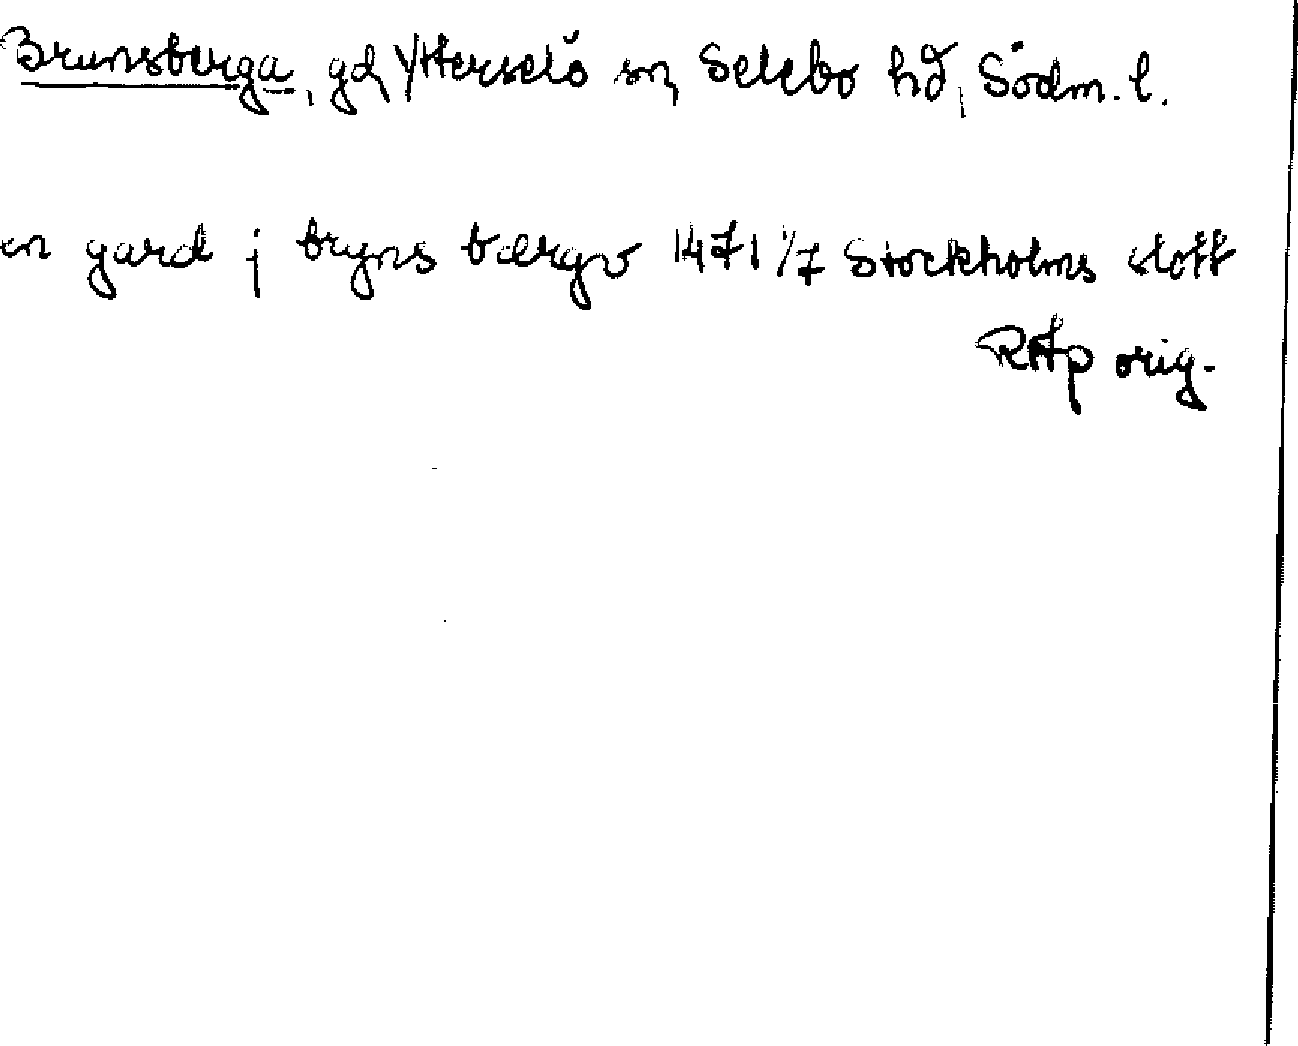 Brunsberga, gd, Ytterselö sn, Selebo hd, Södm. l.
en gard j bryns bergo 1471 1/7 Stockholms slott
RAp orig.